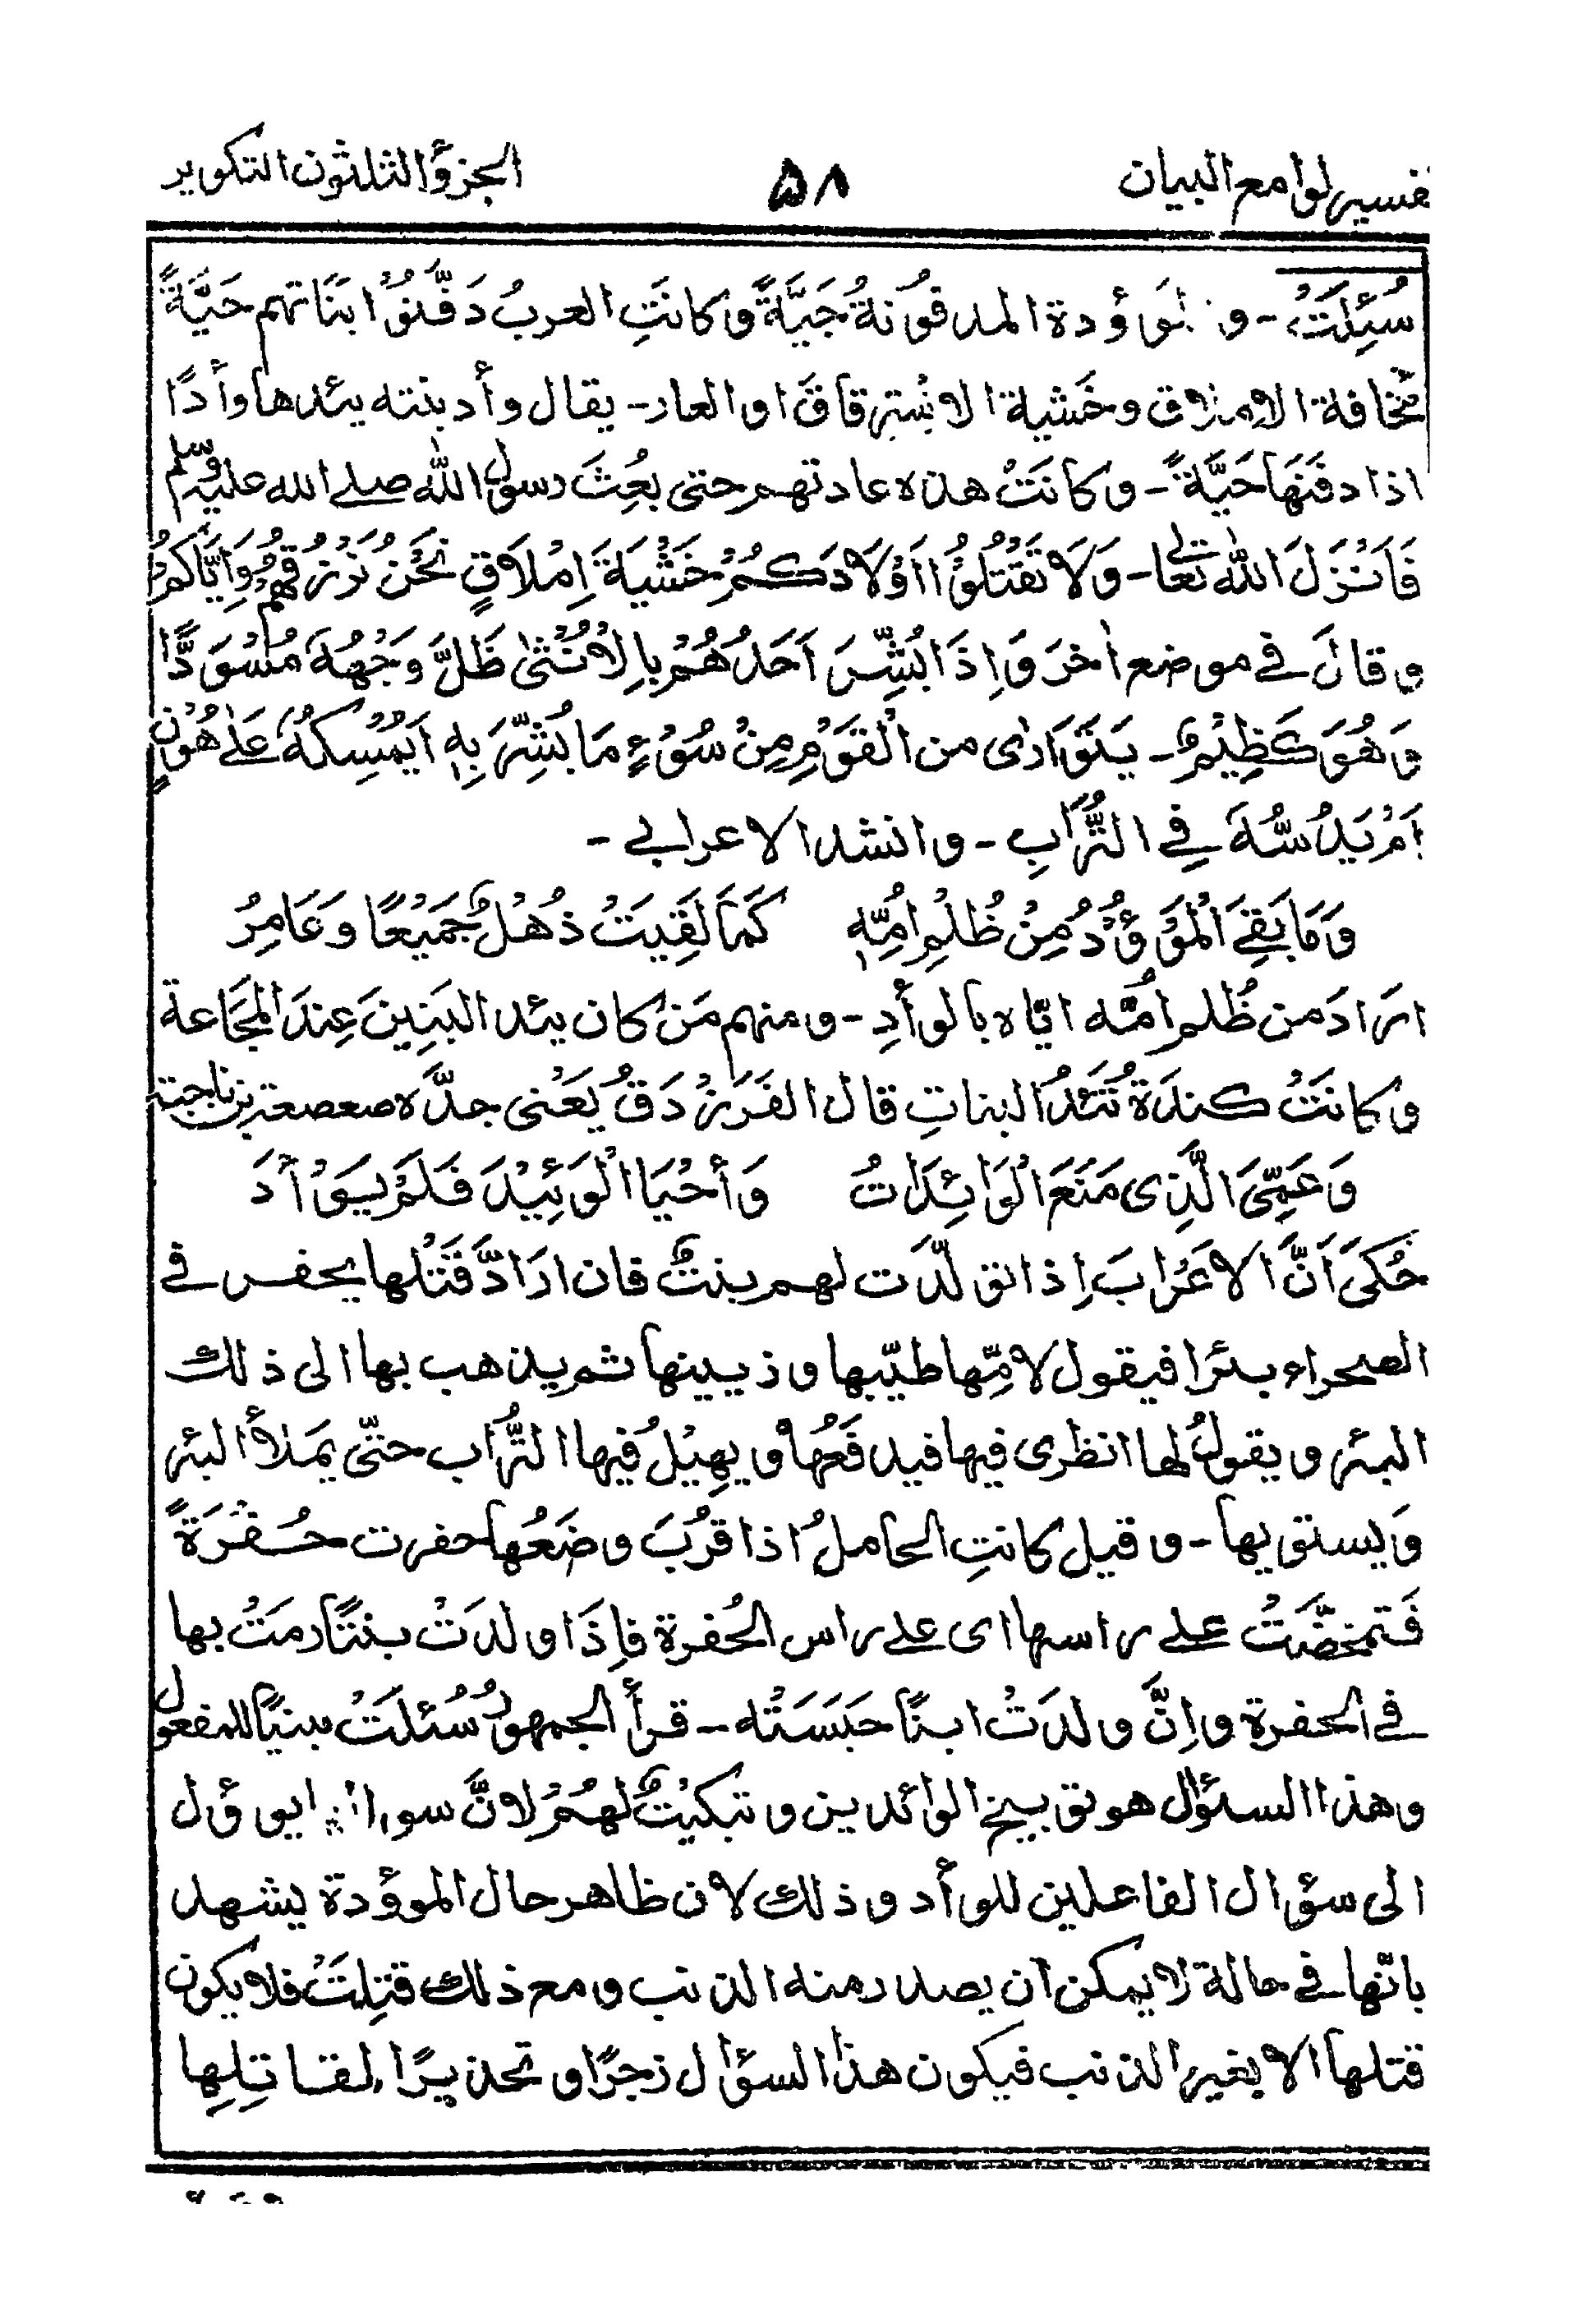 تفسير لوامع البيان ٥٨ الجزؤ الثلثون التكوير
سُئِلَتْ - و الموؤدة المدفونةُ حَيَّةً وكانَتِ العربُ دَفَّنُوْا بَنَاتهم حَيَّةً
مخافة الاملاق وخَشية الاسْترقاق او العار - يقال وأد بنته يئدها وأدًا
اذا دفَنَهَا حَيَّةً - وكانَتْ هذه عادتهم حتى بُعِثَ رسول الله صلے الله علیہ وسلم
فَاَنْزَلَ اللہ تعالیٰ - وَلَا تَقْتُلُوْا اَوْلَادَكُمْ خَشْيَةَ اِمْلَاقٍ نَحْنُ نَرْزُقُهُمْ وَاِيَّاكُمْ
وقالَ فے موضع اٰخرَ وَاِذَا بُشِّرَ اَحَدُهُمْ بِالْاُنْثىٰ ظَلَّ وَجْهُهٗ مُسْوَدًّا
وَهُوَ كَظِيْمٌ - يَتَوَارٰى من الْقَوْمِ مِنْ سُوْءِ مَا بُشِّرَ بِهٖ اَيُمْسِكُهٗ عَلٰے هُوْنٍ
اَمْ يَدُسُّهٗ فِے التُّرَابِ - وانشد الاعرابے -
وَمَا بَقِےَ الْمَوْؤُدُ مِنْ ظُلْمِ اُمِّهٖ كَمَا لَقِيَتْ ذُهْلٌ جَمِيْعًا وَعَامِرُ
اَرَادَ من ظُلم اُمِّه ايّاه بالوأدِ - ومنهم مَنْ كان يئد البَنِينَ عِندَ المَجَاعة
وكانَتْ كندَة تَئدُ البناتِ قال الفَرَزْدَقُ يَعْنى جدَّه صعصعة بن ناجية
وَعَمِّىَ الَّذِى مَنَعَ الْوَائِدَاتْ وَأحْيَا الْوَئِيْدَ فَلَمْ يُوْأَدَ
حُكىَ اَنَّ الاَعْرَابَ اِذا تولّدَت لهم بنتٌ فان ارَادَ قَتْلها يحفر فے
الصحراء بئرًا فيقول لامِّها طيّبها وزيينها ثم يذهب بها الى ذلك
البئر ويقولُ لها انظرى فيها فيدفَعُها ويهِيْلُ فيها التُّرَاب حتّى يَملأ البئر
وَيستوى بها - وقيل كانتِ الحاملُ اذا قرُبَ وضَعُها حفرت حُفْرَةً
فَتمخضَّتْ علے راسها اى علے راس الحُفرة فاِذَا ولدَتْ بنتًا رمَتْ بها
فے الحفرة واِنْ ولدَتْ ابنًا حَبَسَتْه - قرأ الجمهورُ سُئلَتْ مبنيًا للمفعول
وهذا السئوال هو توبيخ الوائدين وتبكيْتٌ لهُمْ لانَّ سوا يوؤل
الى سئوال الفاعلين للوأد وذلك لان ظاهر حال الموؤدة يشهد
بانّها فے حالة لا يمكن ان يصدر منه الذنب ومع ذلك قتِلَتْ فلا يكون
قتلها الا بغير الذنب فيكون هذا السؤال زجرًا وتحذيرًا لقاتِلِها